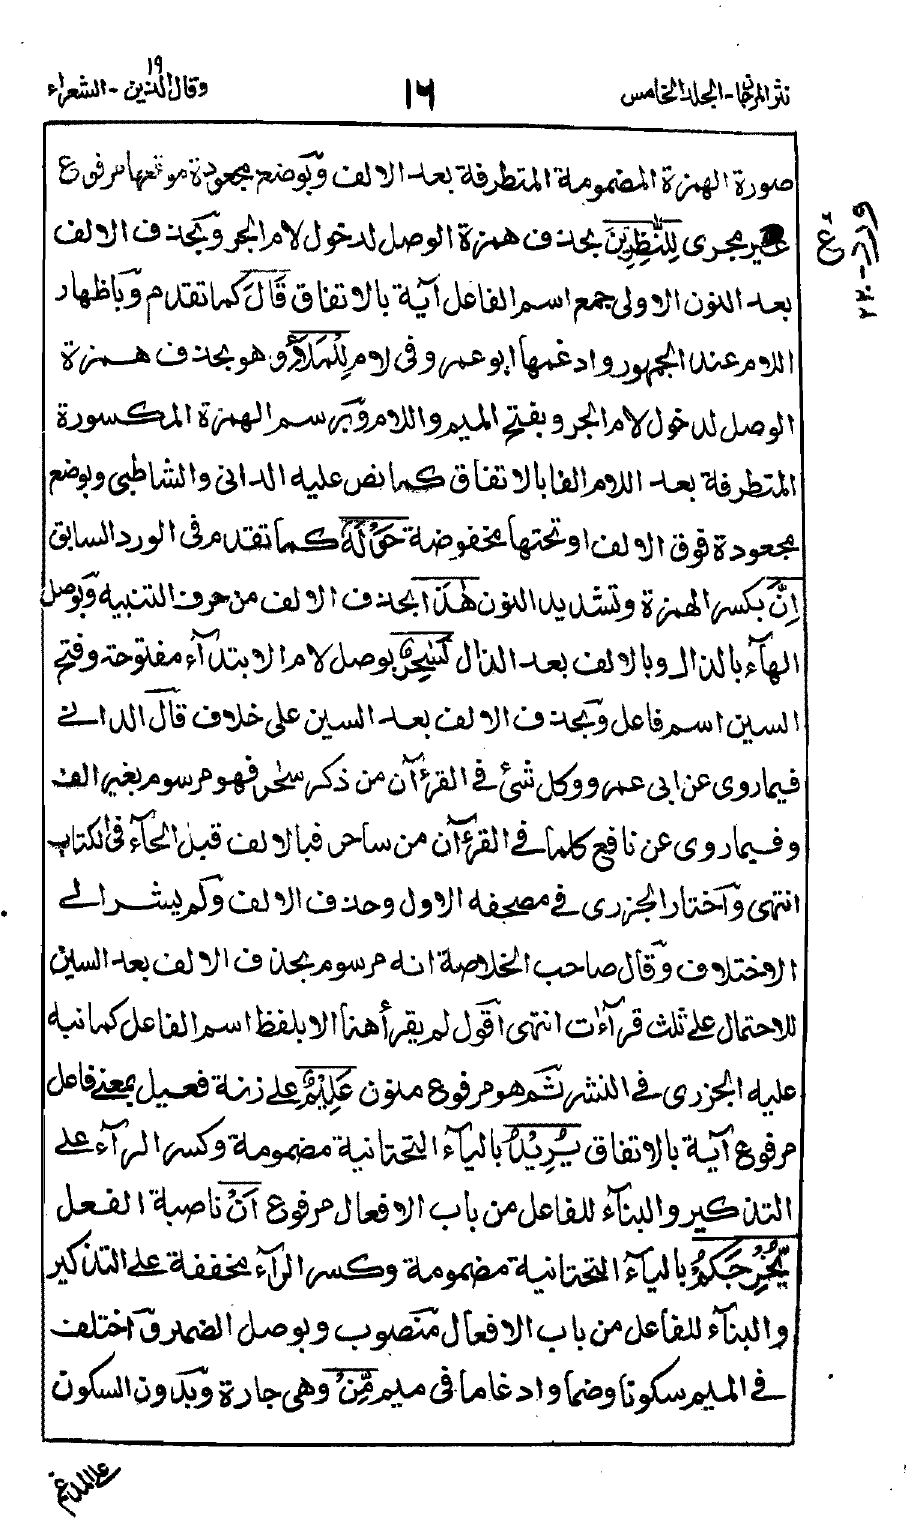 نثر المرجان - المجلد الخامس
١٦
وقال الذين ١٩ - الشعراء
صورة الهمزة المضمومة المتطرفة بعد الالف وبوضع مجعودة موقعها مرفوع
غير مجرى لِلنّٰظِرِينَ بحذف همزة الوصل لدخول لام الجر وبحذف الالف
بعد النون الاولى جمع اسم الفاعل آية بالاتفاق قَالَ كما تقدم وباظهار
اللام عند الجمهور وادغمها ابو عمرو فى لام لِلْمَلَأِ وهو بحذف همزة
الوصل لدخول لام الجر وبفتح الميم واللام وبرسم الهمزة المكسورة
المتطرفة بعد اللام الفا بالاتفاق كما نص عليه الدانى والشاطبى وبوضع
مجعودة فوق الالف او تحتها مخفوضة حَوْلَهُ كما تقدم فى الورد السابق
اِنَّ بكسر الهمزة وتشديد النون هٰذَا بحذف الالف من حرف التنبيه وبوصل
الهآء بالذال وبالالف بعد الذال لَسٰحِرٌ بوصل لام الابتدآء مفتوحة وفتح
السين اسم فاعل وبحذف الالف بعد السين على خلاف قال الدانے
فيما روى عن ابى عمرو وكل شئ فے القرءآن من ذكر سٰحر فهو مرسوم بغير الف
وفيما روى عن نافع كلما فے القرءآن من ساحر فبالالف قبل الحآء فى الكتاب
انتهى وآختار الجزرى فے مصحفه الاول وحذف الالف ولم يشر الے
الاختلاف وقال صاحب الخلاصة انه مرسوم بحذف الالف بعد السين
للاحتمال علے ثلث قرآءٰت انتهى اقول لم يقرأ هنا الا بلفظ اسم الفاعل كما نبه
عليه الجزرى فے النشر ثم هو مرفوع منون عَلِيْمٌ علے زنة فعيل بمعنے فاعل
مرفوع آية بالاتفاق يُرِيْدُ بالياء التحتانية مضمومة وكسر الرآء علے
التذكير والبنآء للفاعل من باب الافعال مرفوع اَنْ ناصبة الفعل
يُّخْرِجَكُمْ بالياء التحتانية مضمومة وكسر الرآء مخففة علے التذكير
والبنآء للفاعل من باب الافعال منصوب وبوصل الضمير واختلف
فے الميم سكونا وضما وادغاما فى ميم مِّنْ وهى جارة وبدون السكون